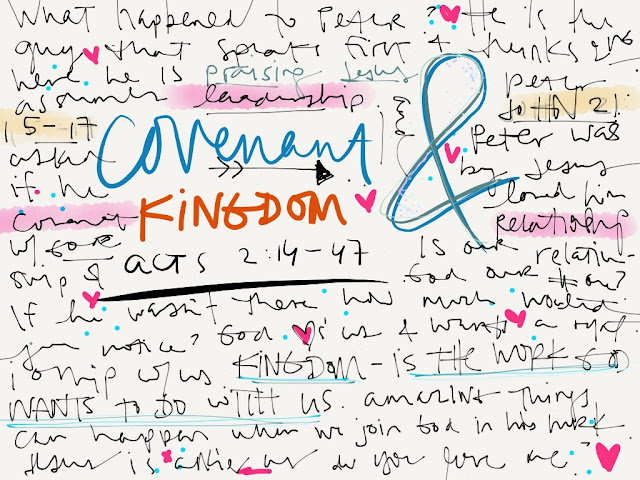 What happened to Peter? He is the
guy that speaks first & thinks
here he is praising Jesus
assumes leadership. Peter
JOHN 21
15-17
Covenant &
Peter was
asked by Jesus
if he loved him
KINGDOM
Covenant relationship
acts 2:14-47
Is our relation-
ship w/ God our
If he wasn't there how much would
you notice? God is w/ us & wants a
ionship w/ us KINGDOM - IS THE WORK GOD
WANTS TO DO WITH US. amazing things
can happen when we join God in his work
Jesus is asking us do you love me?